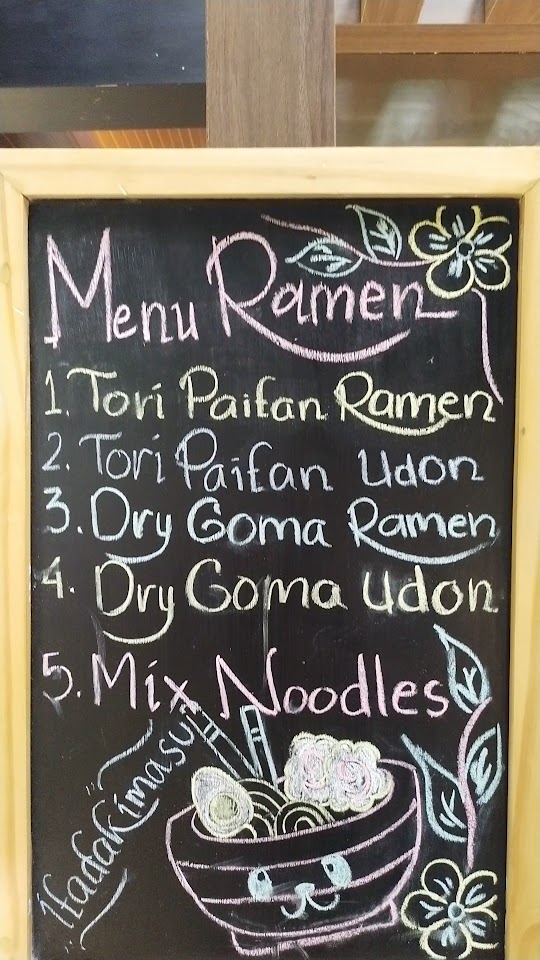 Menu Ramen
1. Tori Paitan Ramen
2. Tori Paitan Udon
3. Dry Goma Ramen
4. Dry Goma Udon
5. Mix Noodles
Itadakimasu